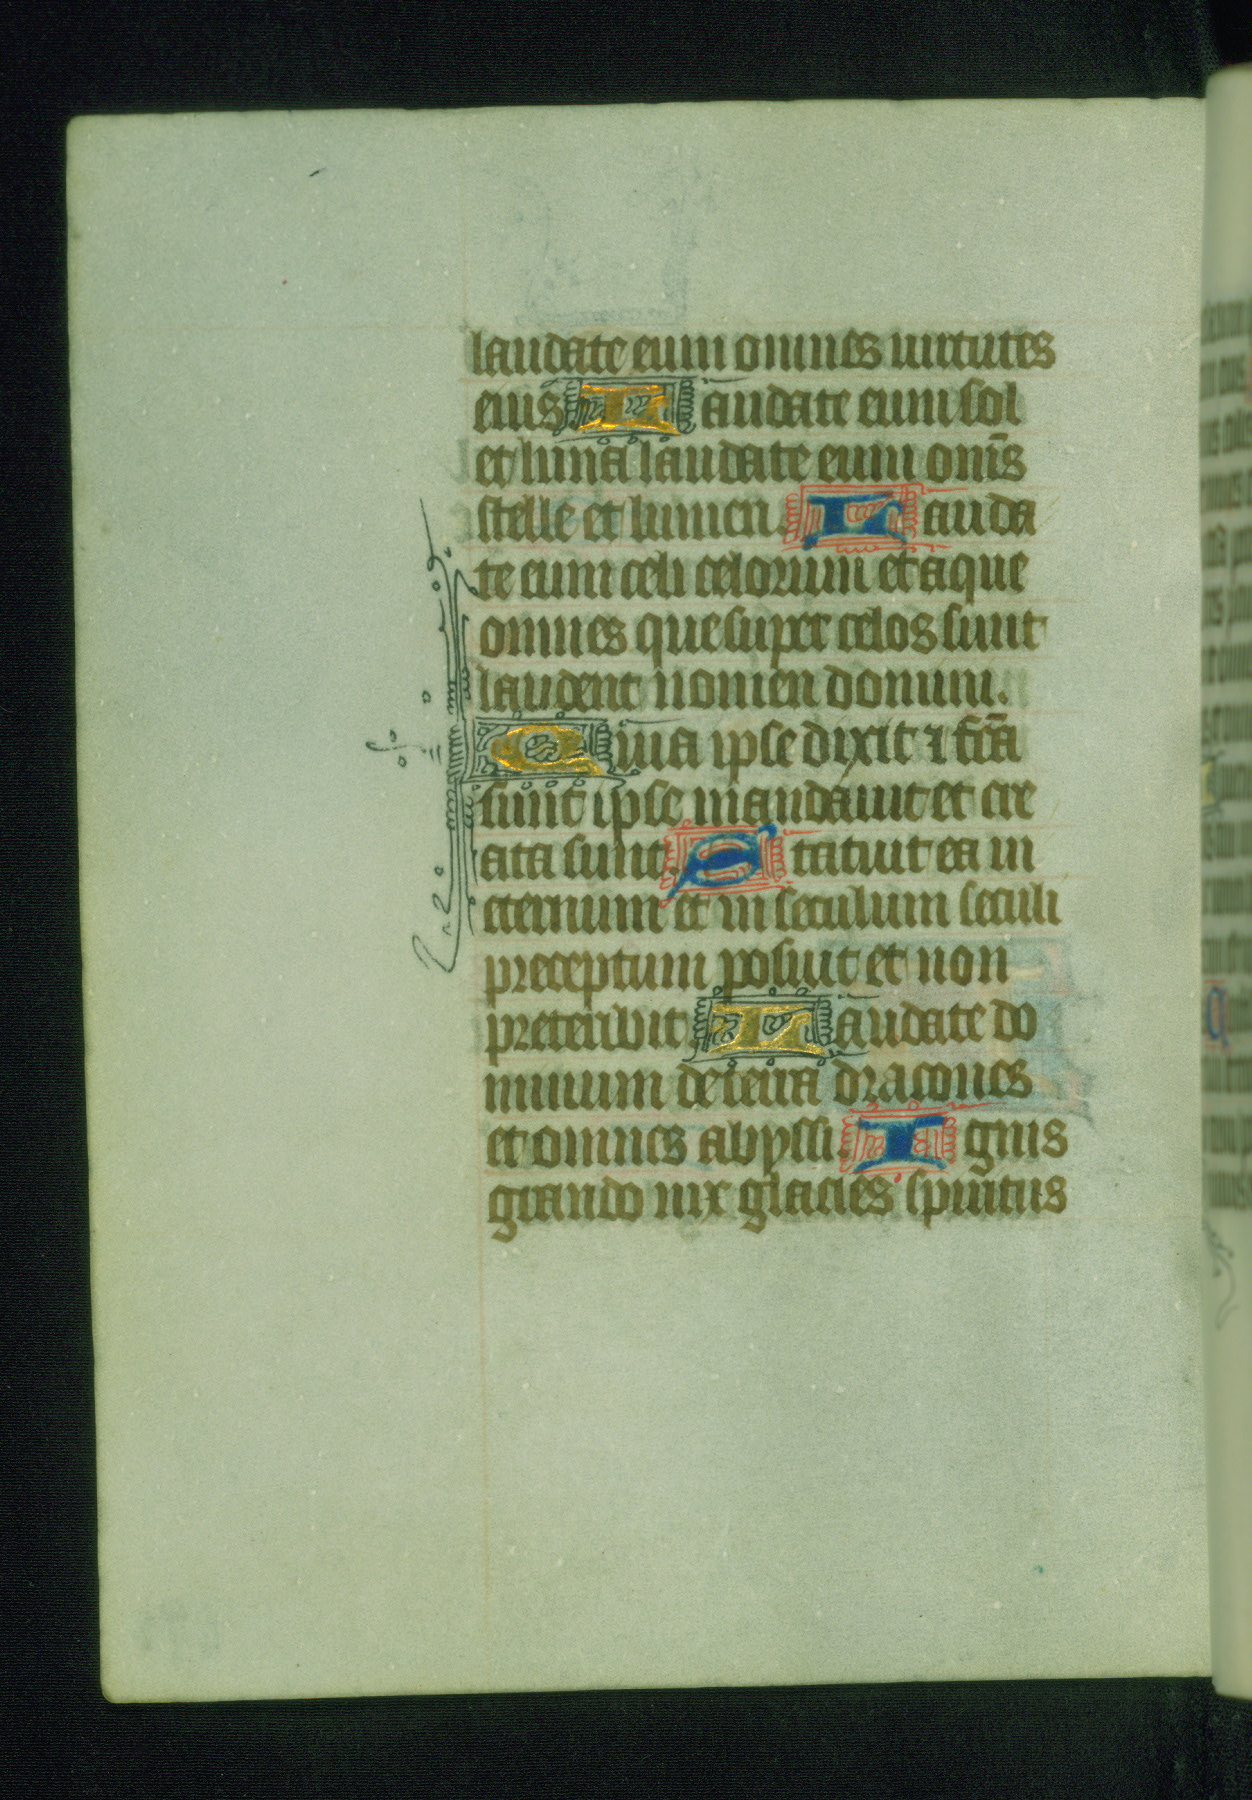 laudate eum omnes uirtutes
eius. Laudate eum sol
et luna laudate eum om̄s
stelle et lumen. Lauda
te eum celi celorum et aque
omnes que super celos sunt
laudent nomen domini.
Quia ipse dixit ⁊ fc̄a
sunt ipse mandauit et cre
ata sunt. Statuit ea in
eternum et in seculum seculi
preceptum posuit et non
preteribit. Laudate do
minum de terra dracones
et omnes abyssi. Ignis
grando nix glacies spiritus